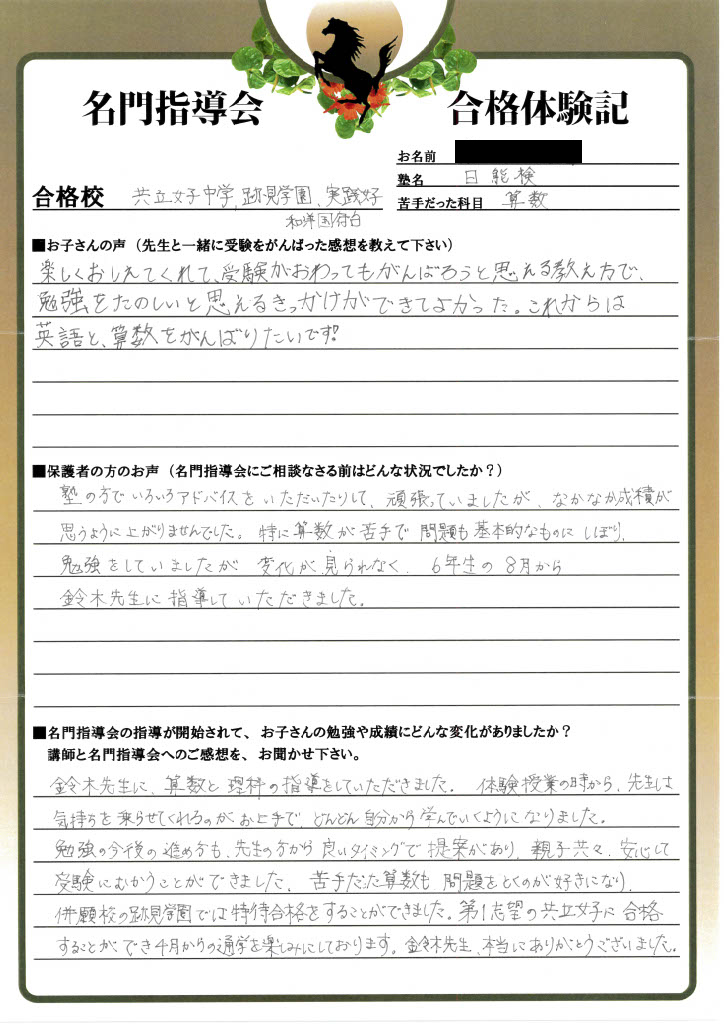 名門指導会 合格体験記
お名前
塾名 日能研
合格校 共立女子中学、跡見学園、実践女子
苦手だった科目 算数
和洋国府台
■お子さんの声（先生と一緒に受験をがんばった感想を教えて下さい）
楽しくおしえてくれて、受験がおわってもがんばろうと思える教え方で、
勉強をたのしいと思えるきっかけができてよかった。これからは
英語と、算数をがんばりたいです!
■保護者の方のお声（名門指導会にご相談なさる前はどんな状況でしたか？）
塾の方でいろいろアドバイスをいただいたりして、頑張っていましたが、なかなか成積が
思うように上がりませんでした。特に算数が苦手で問題も基本的なものにしぼり、
勉強をしていましたが変化が見られなく、6年生の8月から
鈴木先生に指導していただきました。
■名門指導会の指導が開始されて、お子さんの勉強や成績にどんな変化がありましたか？
講師と名門指導会へのご感想を、お聞かせ下さい。
鈴木先生に、算数と理科の指導をしていただきました。体験授業の時から、先生は
気持ちを乗らせてくれるのがお上手で、どんどん自分から学んでいくようになりました。
勉強の今後の進め方も、先生の方から良いタイミングで提案があり、親子共々、安心して
受験にむかうことができました。苦手だった算数も問題をとくのが好きになり、
併願校の跡見学園では特待合格をすることができました。第1志望の共立女子に合格
することができ4月からの通学を楽しみにしております。鈴木先生、本当にありがとうございました。